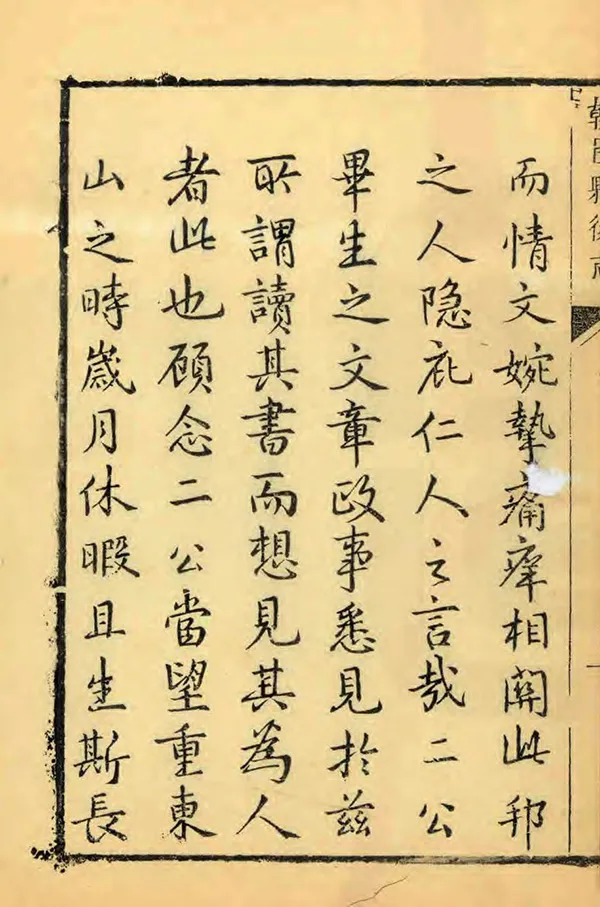 朝邑縣後志
而情文婉摯痛痒相關此邦
之人隐庇仁人之言哉二公
畢生之文章政事悉見於茲
所謂讀其書而想見其為人
者此也顧念二公當望重東
山之時歲月休暇且生斯長